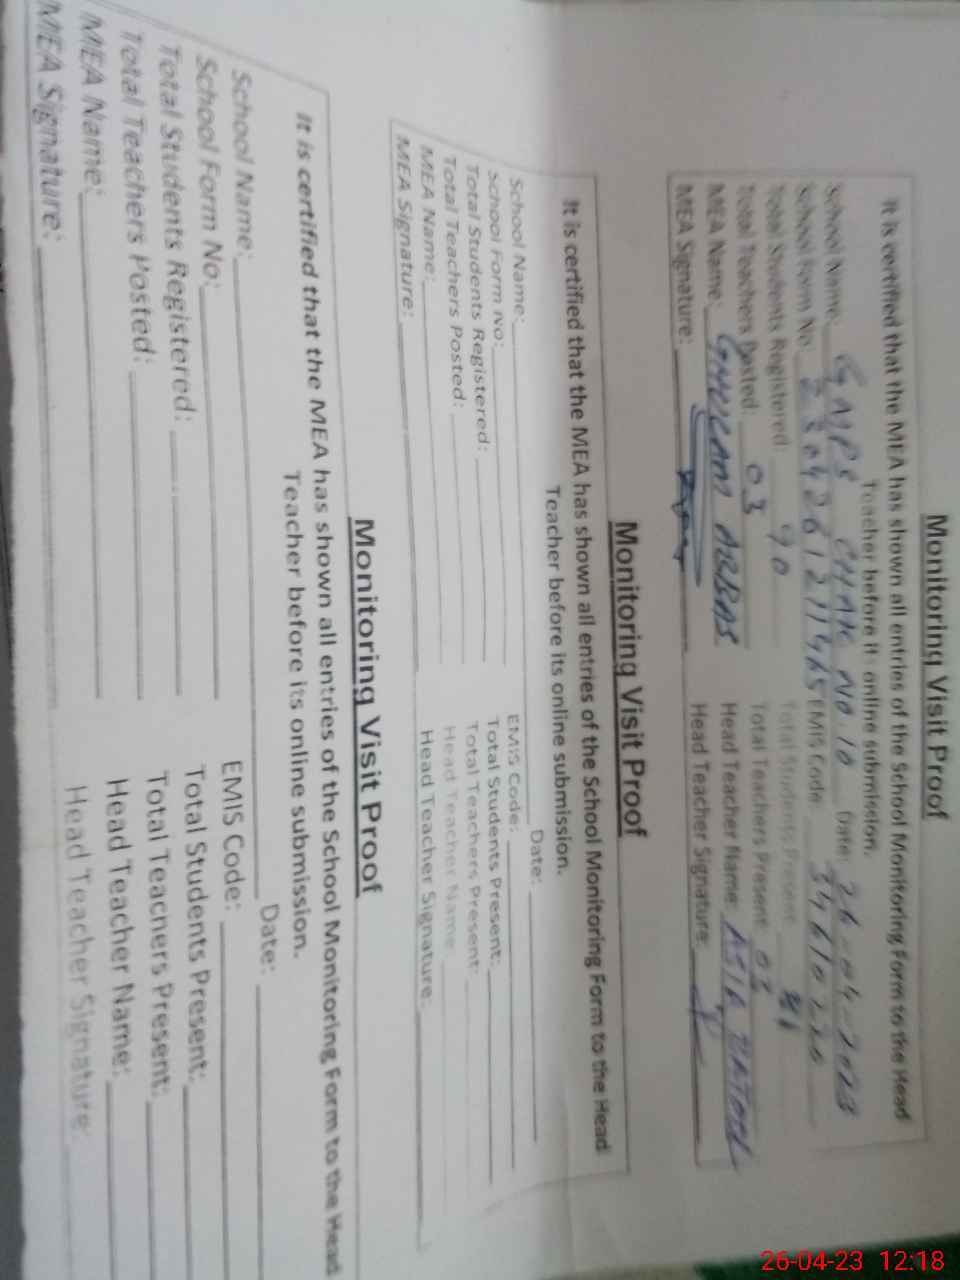 Monitoring Visit Proof
It is certified that the MEA has shown all entries of the School Monitoring Form to the Head
Teacher before its online submission.
School Name: GMPS CHAK NO 10 Date: 26-04-2023
School Form No: EMIS Code: 34610220
Total Students Registered: 90 Total Students Present: 81
Total Teachers Posted: 03 Total Teachers Present: 03
MEA Name: GHULAM ABBAS Head Teacher Name: ASIA BATOOL
MEA Signature: Head Teacher Signature:
Monitoring Visit Proof
It is certified that the MEA has shown all entries of the School Monitoring Form to the Head
Teacher before its online submission.
School Name: Date:
School Form No: EMIS Code:
Total Students Registered: Total Students Present:
Total Teachers Posted: Total Teachers Present:
MEA Name: Head Teacher Name:
MEA Signature: Head Teacher Signature:
Monitoring Visit Proof
It is certified that the MEA has shown all entries of the School Monitoring Form to the Head
Teacher before its online submission.
School Name: Date:
School Form No: EMIS Code:
Total Students Registered: Total Students Present:
Total Teachers Posted: Total Teachers Present:
MEA Name: Head Teacher Name:
MEA Signature: Head Teacher Signature:
26-04-23 12:18